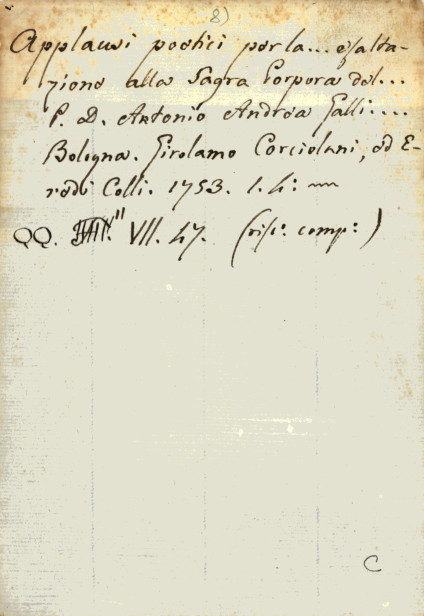 8)
Applausi poetici per la... esalta-
zione alla Sagra Porpora del...
P. D. Antonio Andrea Galli....
Bologna. Girolamo Corciolani, ed E-
redi Colli. 1753. 1. 4:
QQ. VII. 47. (risc: comp:)
C